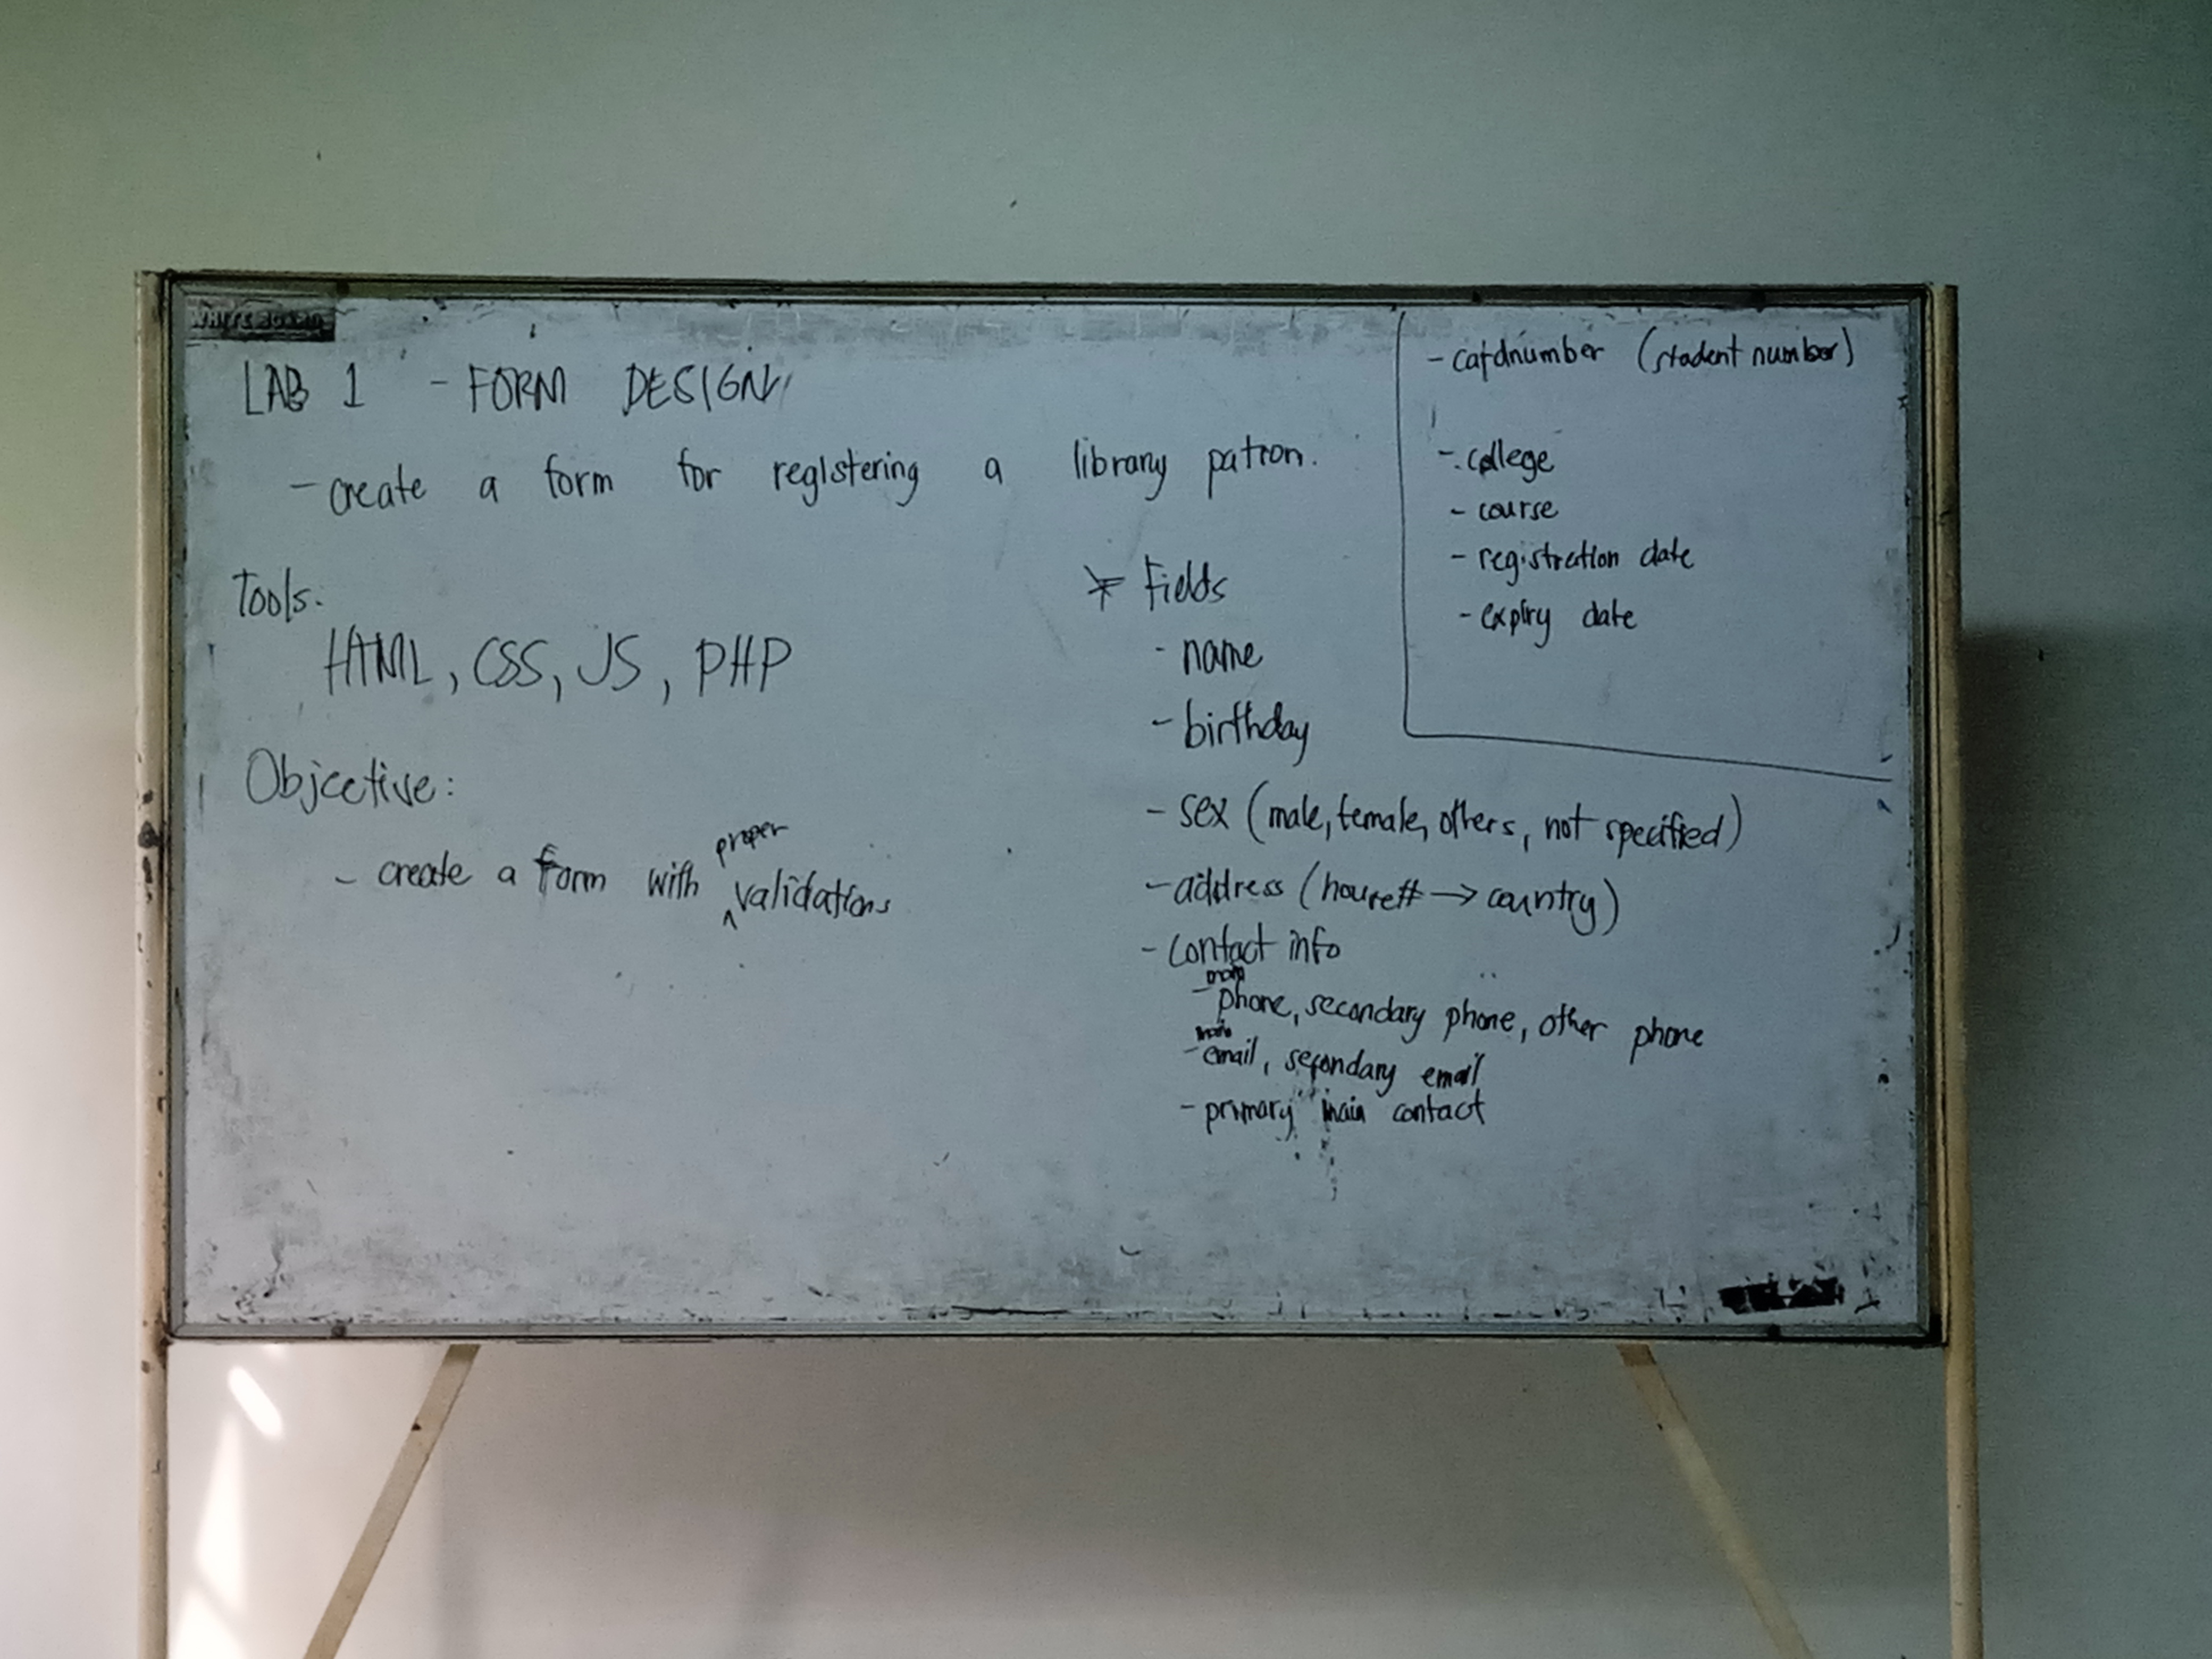 WHITE BOARD
LAB 1 - FORM DESIGN
- create a form for registering a library patron.
Tools:
HTML, CSS, JS, PHP
Objective:
- create a form with proper validations
* Fields
- name
- birthday
- sex (male, female, others, not specified)
- address (house# → country)
- contact info
main
- phone, secondary phone, other phone
main
- email, secondary email
- primary main contact
- cardnumber (student number)
- college
- course
- registration date
- expiry date